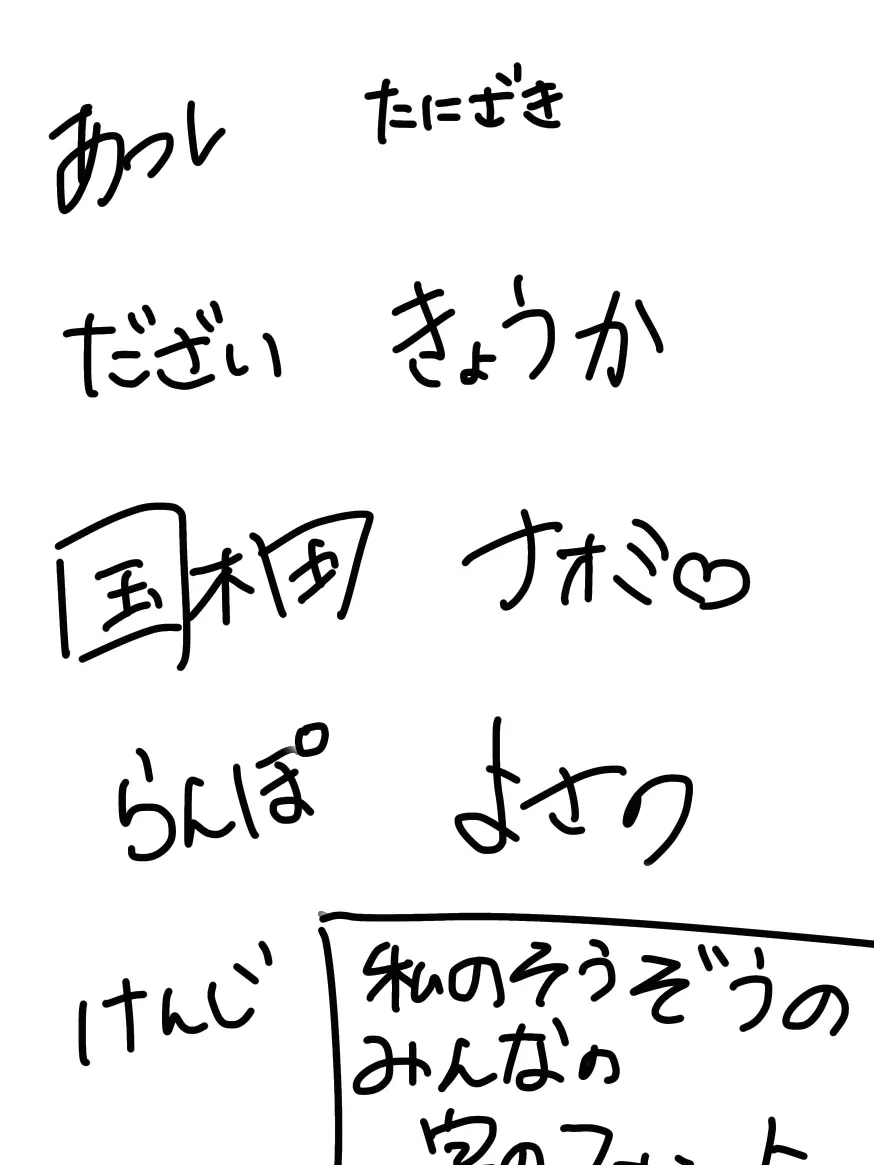 あつし
たにざき
だざい
きょうか
国木田
ナオミ♡
らんぽ
よさの
けんじ
私のそうぞうの
みんなの
字のフォント